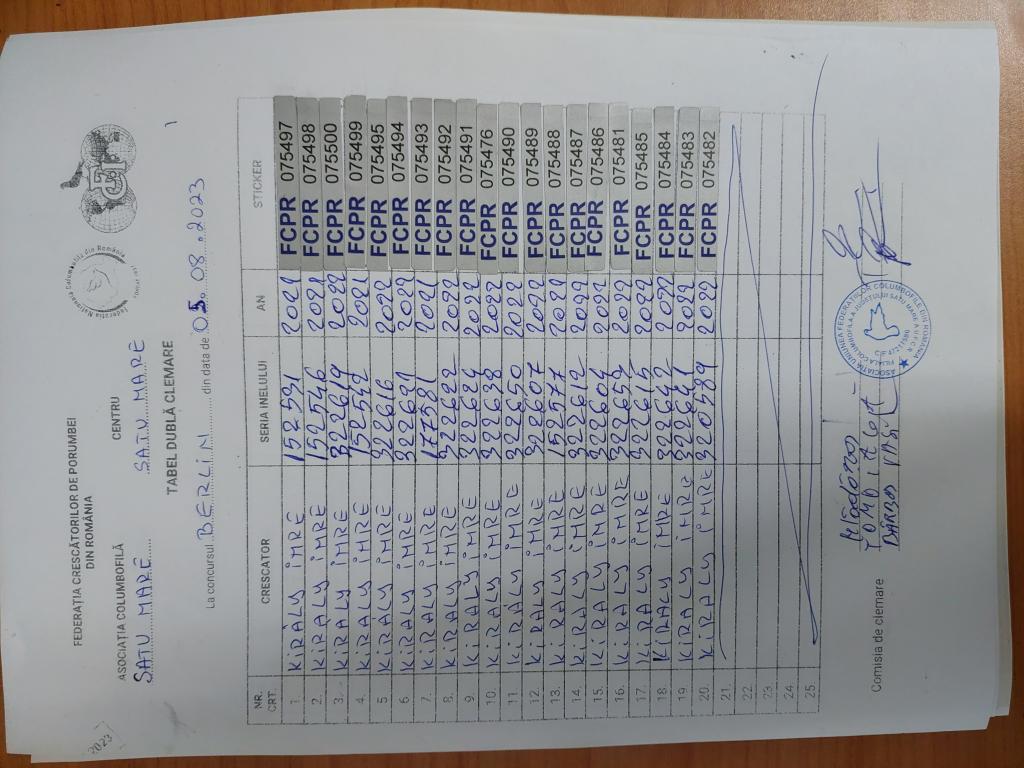 2023
FEDERAȚIA CRESCĂTORILOR DE PORUMBEI
DIN ROMÂNIA
ASOCIAȚIA COLUMBOFILĂ CENTRU
SATU MARE SATU MARE
TABEL DUBLĂ CLEMARE
La concursul BERLIN din data de 05.08.2023
NR. CRT. CRESCĂTOR SERIA INELULUI AN STICKER
1. KIRALY IMRE 152591 2021 FCPR 075497
2. KIRALY IMRE 152546 2021 FCPR 075498
3. KIRALY IMRE 322619 2022 FCPR 075500
4. KIRALY IMRE 152542 2021 FCPR 075499
5 KIRALY IMRE 322616 2022 FCPR 075495
6 KIRALY IMRE 322691 2022 FCPR 075494
7. KIRALY IMRE 177581 2021 FCPR 075493
8. KIRALY IMRE 322622 2022 FCPR 075492
9. KIRALY IMRE 322624 2022 FCPR 075491
10. KIRALY IMRE 322638 2022 FCPR 075476
11. KIRALY IMRE 322650 2022 FCPR 075490
12. KIRALY IMRE 322607 2022 FCPR 075489
13. KIRALY IMRE 152577 2021 FCPR 075488
14. KIRALY IMRE 322612 2022 FCPR 075487
15. KIRALY IMRE 322604 2022 FCPR 075486
16. KIRALY IMRE 322652 2022 FCPR 075481
17. KIRALY IMRE 322615 2022 FCPR 075485
18. KIRALY IMRE 322642 2022 FCPR 075484
19 KIRALY IMRE 322641 2022 FCPR 075483
20. KIRALY IMRE 320589 2022 FCPR 075482
21.
22.
23.
24
25.
Comisia de clemare